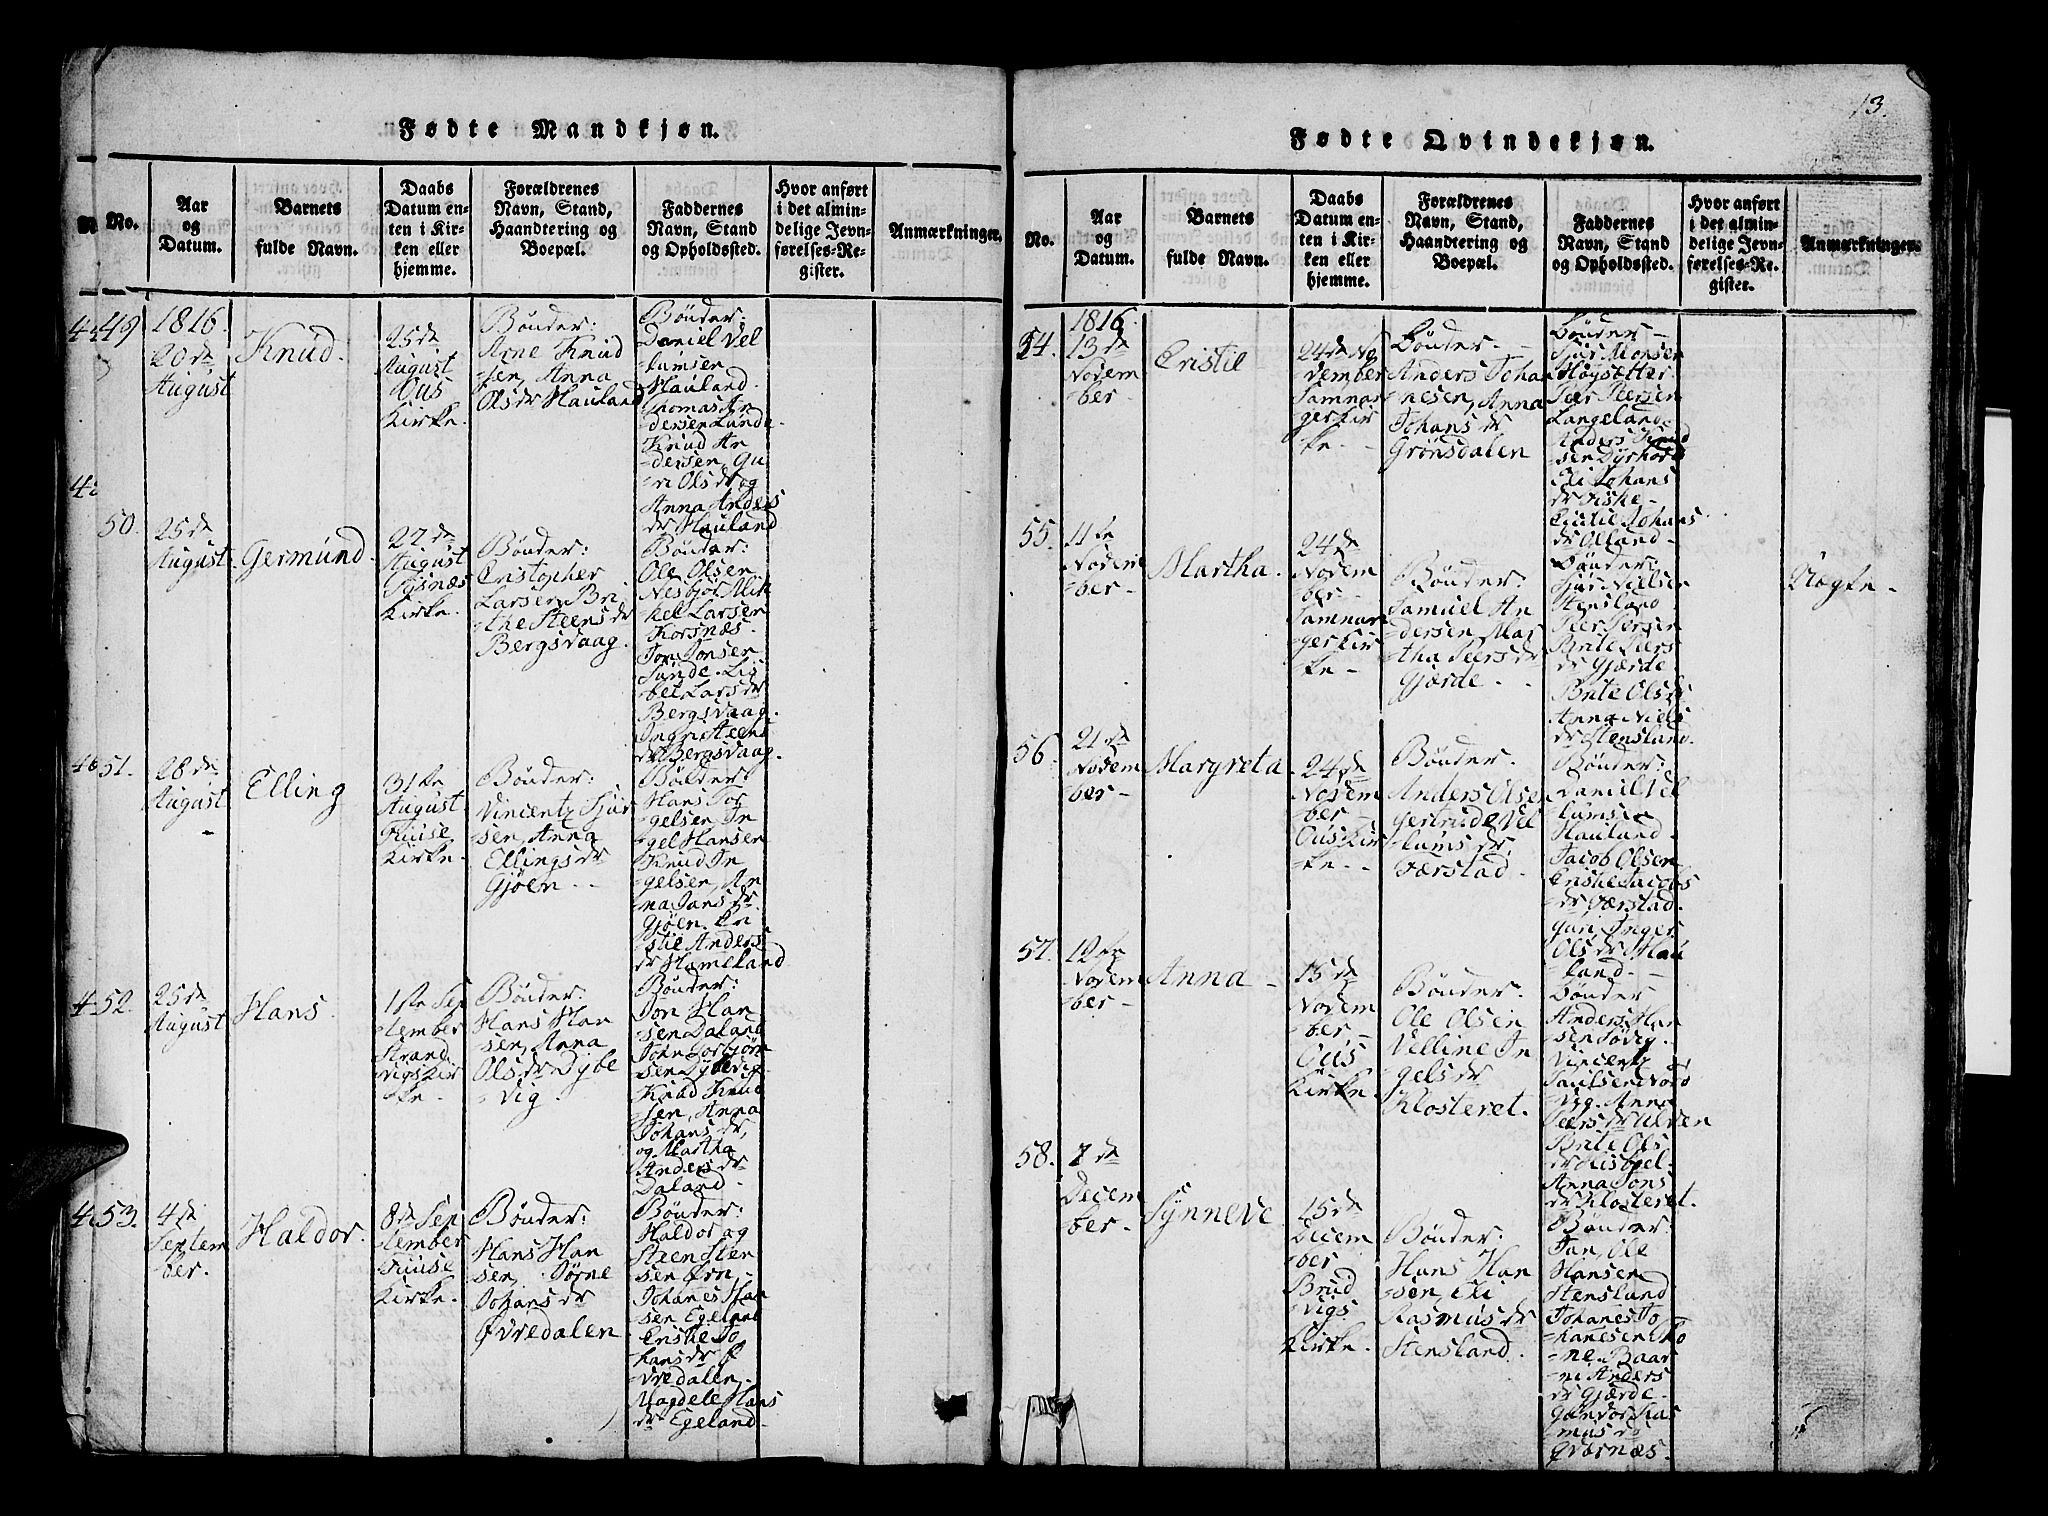 13.
Fødte Mandkjøn.
No.
Aar
og
Datum.
Barnets
fulde Navn.
Daabs
Datum en-
ten i Kir-
ken eller
hjemme.
Forældrenes
Navn, Stand,
Haandtering og
Boepæl.
Faddernes
Navn, Stand
og Opholdssted.
Hvor anført
i det almin-
delige Jevn-
førelses-Re-
gister.
Anmærkninger.
49
1816.
20de
August
Knud.
25de
August
Ous
Kirke.
Bönder:
Arne Knud
sen, Anna
Olsdr Hauland
Bönder:
Daniel Vel
lumsen
Hauland.
Thomas An
dersen Lunde.
Knud An
dersen, Gu
ri Olsdr og
Anna Anders
dr Hauland
50.
25de
August
Germund.
27de
August
Tysnæs
Kirke.
Bönder:
Cristopher
Larsen, Bri
the Steensdr
Bergsvaag.
Bönder:
Ole Olsen
Nesbjör Mik
kel Larsen
Korsnæs.
Jon Jonsen
Sunde. Lis
bet Larsdr
Bergsvaag.
Ingri Steens
dr Bergsvaag.
51.
28de
August
Elling
31te
August
Fuuse
Kirke.
Bönder:
Vincentz Sjur
sen, Anna
Ellingsdr
Gjöen.
Bönder
Hans Tor
gelsen In
gel Hansen
Knud In
gelsen, An
na Jansdr
Gjöen. Cri
stie Anders
dr Hameland
52.
25de
August
Hans.
1ste Sep
tember
Strand
vigs Kir
ke.
Bönder:
Hans Han
sen, Anna
Olsdr Dybe
vig.
Bönder:
Jon Han
sen Daland
John Torbjörn
sen Dybevig
Knud Knud
sen, Anna
Johansdr,
og Martha
Andersdr
Daland.
53.
4de
Septem
ber.
Haldor.
8de Sep
tember
Fuuse
Kirke.
Bönder:
Hans Han
sen, Törne
Johansdr
Övredalen
Bönder:
Haldor og
Steen Sten
sen Örn.
Johanes Han
sen Egeland
Eriske Jo
hansdr Ö
vredalen.
Magdele Hans
dr Egeland.
Fødte Qvindekjøn.
No.
Aar
og
Datum.
Barnets
fulde Navn.
Daabs
Datum en-
ten i Kir-
ken eller
hjemme.
Forældrenes
Navn, Stand,
Haandtering og
Boepæl.
Faddernes
Navn, Stand
og Opholdssted.
Hvor anført
i det almin-
delige Jevn-
førelses-Re-
gister.
Anmærkninger.
54.
1816.
13de
Novem
ber.
Cristie
24de No
vember
Samnan
ger Kir
ke.
Bönder.
Anders Johan
nesen, Anna
Johansdr
Grönsdalen
Bönder
Sjur Monsen
Höysetter.
Peer Peersen
Langeland.
Anders Knud
sen Dyrhovd
Eli Johans
dr Tiske
Cicilie Johans
dr Olland.
55.
11te
Novem
ber.
Martha.
24de
Novem
ber.
Samnan
ger Kir
ke.
Bönder:
Samuel An
dersen, Mar
tha Peersdr
Gjerde.
Bönder:
Sjur Nielsen
Stensland.
Peer Persen
Brite Peers
dr Gjerde
Brite Olsdr
Anna Niels
dr Stensland.
56.
21de
Novem
ber.
Margreta
24de
Novem
ber.
Ous Kir
ke.
Bönder.
Anders Olsen
Gertrude Vel
lumsdr.
Færstad.
Bönder:
Daniel Vel
lumsen
Hauland.
Jacob Olsen
Cristie Jacobs
dr Færstad.
Guri, Inger
Olsdr Hau
land.
57.
12te
Novem
ber.
Anna
15de
Novem
ber.
Ous
Kirke.
Bönder.
Ole Olsen
Velline In
gelsdr
Klosteret.
Bönder
Anders Han
sen Søvig.
Vincent
Paulsen Nord
vig. Anna
Peersdr Ulven
Brite Ols
dr Hisbjel.
Anna Jons
dr Klosteret.
58.
7de
Decem
ber.
Synneve
15de
Decem
ber
Brud
vigs
Kirke.
Bönder:
Hans Han
sen, Eli
Rasmusdr
Stensland.
Bönder:
Jan, Ole
Hansen
Stensland
Johanes Jo
hanesen
Baar
Anders
dr Gjerde
Ras
mus
Qværnæs.